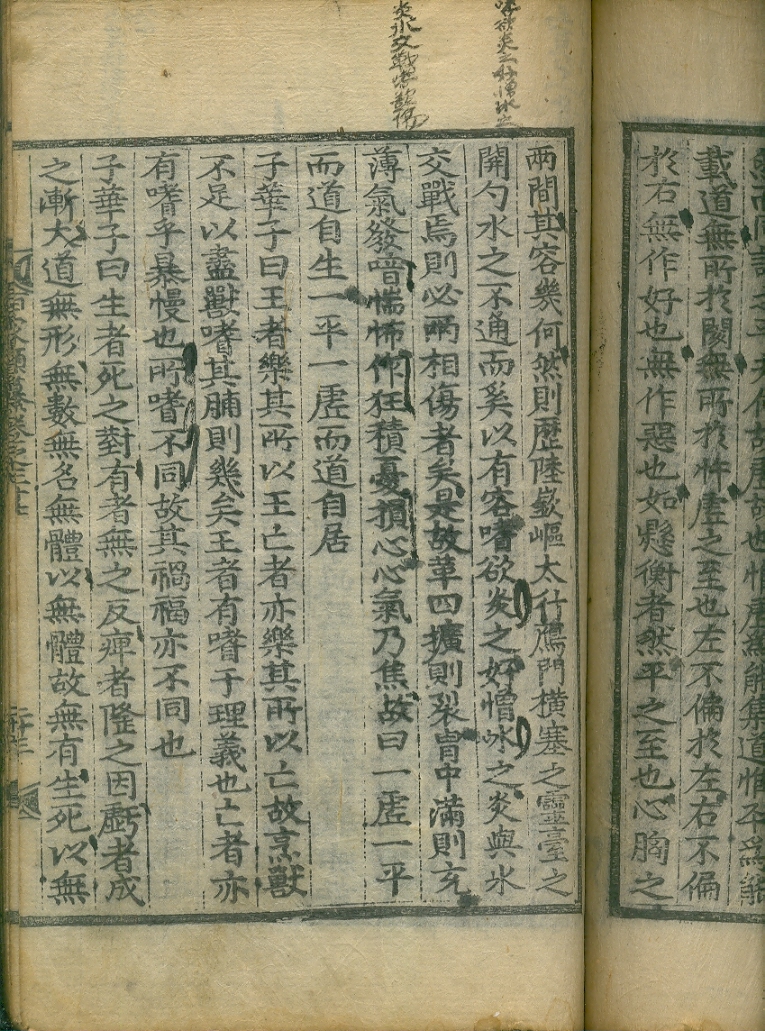 載道無所於閡無所於忤虛之至也左不偏於左右不偏
於右無作好也無作惡也如懸衡者然平之至也心胸之
嗜欲炎之好憎冰之
炎氷交戰
兩間其容幾何然則歷陸嶔嶇太行鴈門橫塞之靈臺之
開勺水之不通而奚以有容嗜欲炎之好憎冰之炎與氷
交戰焉則必兩相傷者矣是故革四擴則裂胷中滿則充
薄氣發喑惴怖作狂積憂損心心氣乃焦故曰一虛一平
而道自生一平一虛而道自居
子華子曰王者樂其所以王亡者亦樂其所以亡故烹獸
不足以盡獸嗜其脯則幾矣王者有嗜于理義也亡者亦
有嗜乎暴慢也所嗜不同故其禍福亦不同也
子華子曰生者死之對有者無之反庳者隆之因虧者成
之漸大道無形無數無名無體以無體故無有生死以無